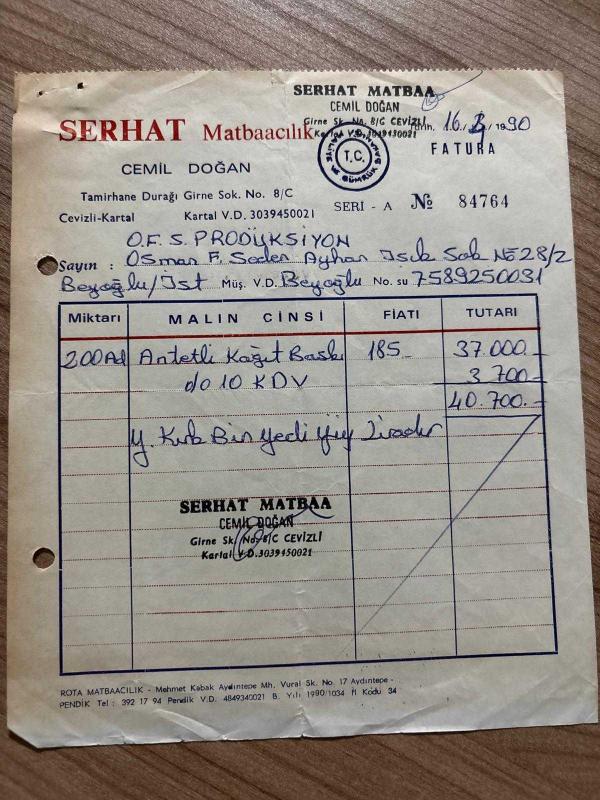 SERHAT MATBAA
CEMİL DOĞAN
Girne Sk. No. 8/C CEVİZLİ
Kartal V.D. 3039450021
SERHAT Matbaacılık
Tarih. 16. / 1990
FATURA
CEMİL DOĞAN
T.C.
MALİYE VE GÜMRÜK BAKANLIĞI
Tamirhane Durağı Girne Sok. No. 8/C
Cevizli-Kartal Kartal V.D. 3039450021
SERİ - A № 84764
O.F.S. PRODÜKSİYON
Sayın : Osman F. Seden Ayhan Işık Sok No 28/2
Beyoğlu/İst Müş. V.D. Beyoğlu No. su 7589250031
Miktarı MALIN CİNSİ FİATI TUTARI
200 Ad Antetli Kağıt Baskı 185- 37.000.-
%10 KDV 3.700-
40.700.-
Y. Kırk Bin Yedi Yüz Liradır
SERHAT MATBAA
CEMİL DOĞAN
Girne Sk. No. 8/C CEVİZLİ
Kartal V.D. 3039450021
ROTA MATBAACILIK - Mehmet Kabak Aydıntepe Mh. Vural Sk. No. 17 Aydıntepe -
PENDİK Tel : 392 17 94 Pendik V.D. 4849340021 B. Yılı 1990/1034 İl Kodu 34